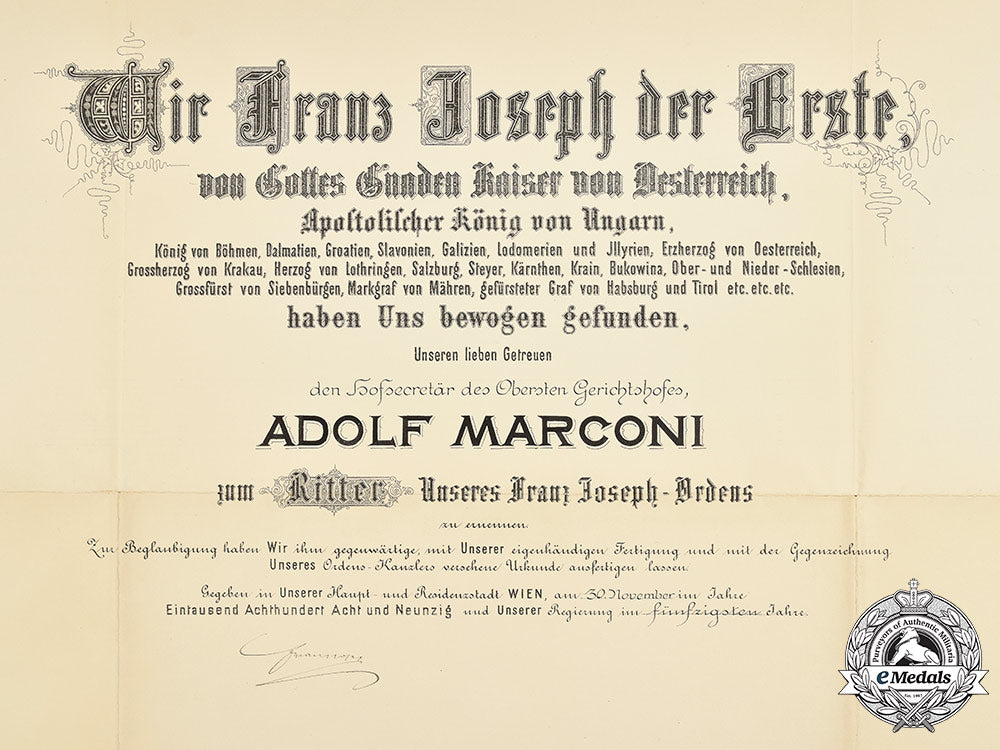 Wir Franz Joseph der Erste,
von Gottes Gnaden Kaiser von Oesterreich,
Apostolischer König von Ungarn,
König von Böhmen, Dalmatien, Croatien, Slavonien, Galizien, Lodomerien und Jllyrien, Erzherzog von Oesterreich,
Grossherzog von Krakau, Herzog von Lothringen, Salzburg, Steyer, Kärnthen, Krain, Bukowina, Ober- und Nieder-Schlesien,
Grossfürst von Siebenbürgen, Markgraf von Mähren, gefürsteter Graf von Habsburg und Tirol etc. etc. etc.
haben Uns bewogen gefunden,
Unseren lieben Getreuen
den Hofsecretär des Obersten Gerichtshofes,
ADOLF MARCONI
zum Ritter Unseres Franz Joseph-Ordens
zu ernennen.
Zur Beglaubigung haben Wir ihm gegenwärtige, mit Unserer eigenhändigen Fertigung und mit der Gegenzeichnung
Unseres Ordens-Kanzlers versehene Urkunde ausfertigen lassen.
Gegeben in Unserer Haupt- und Residenzstadt WIEN, am 30. November im Jahre
Eintausend Achthundert Acht und Neunzig und Unserer Regierung im fünfzigsten Jahre.
Purveyors of Authentic Militaria
eMedals
Est. 1967